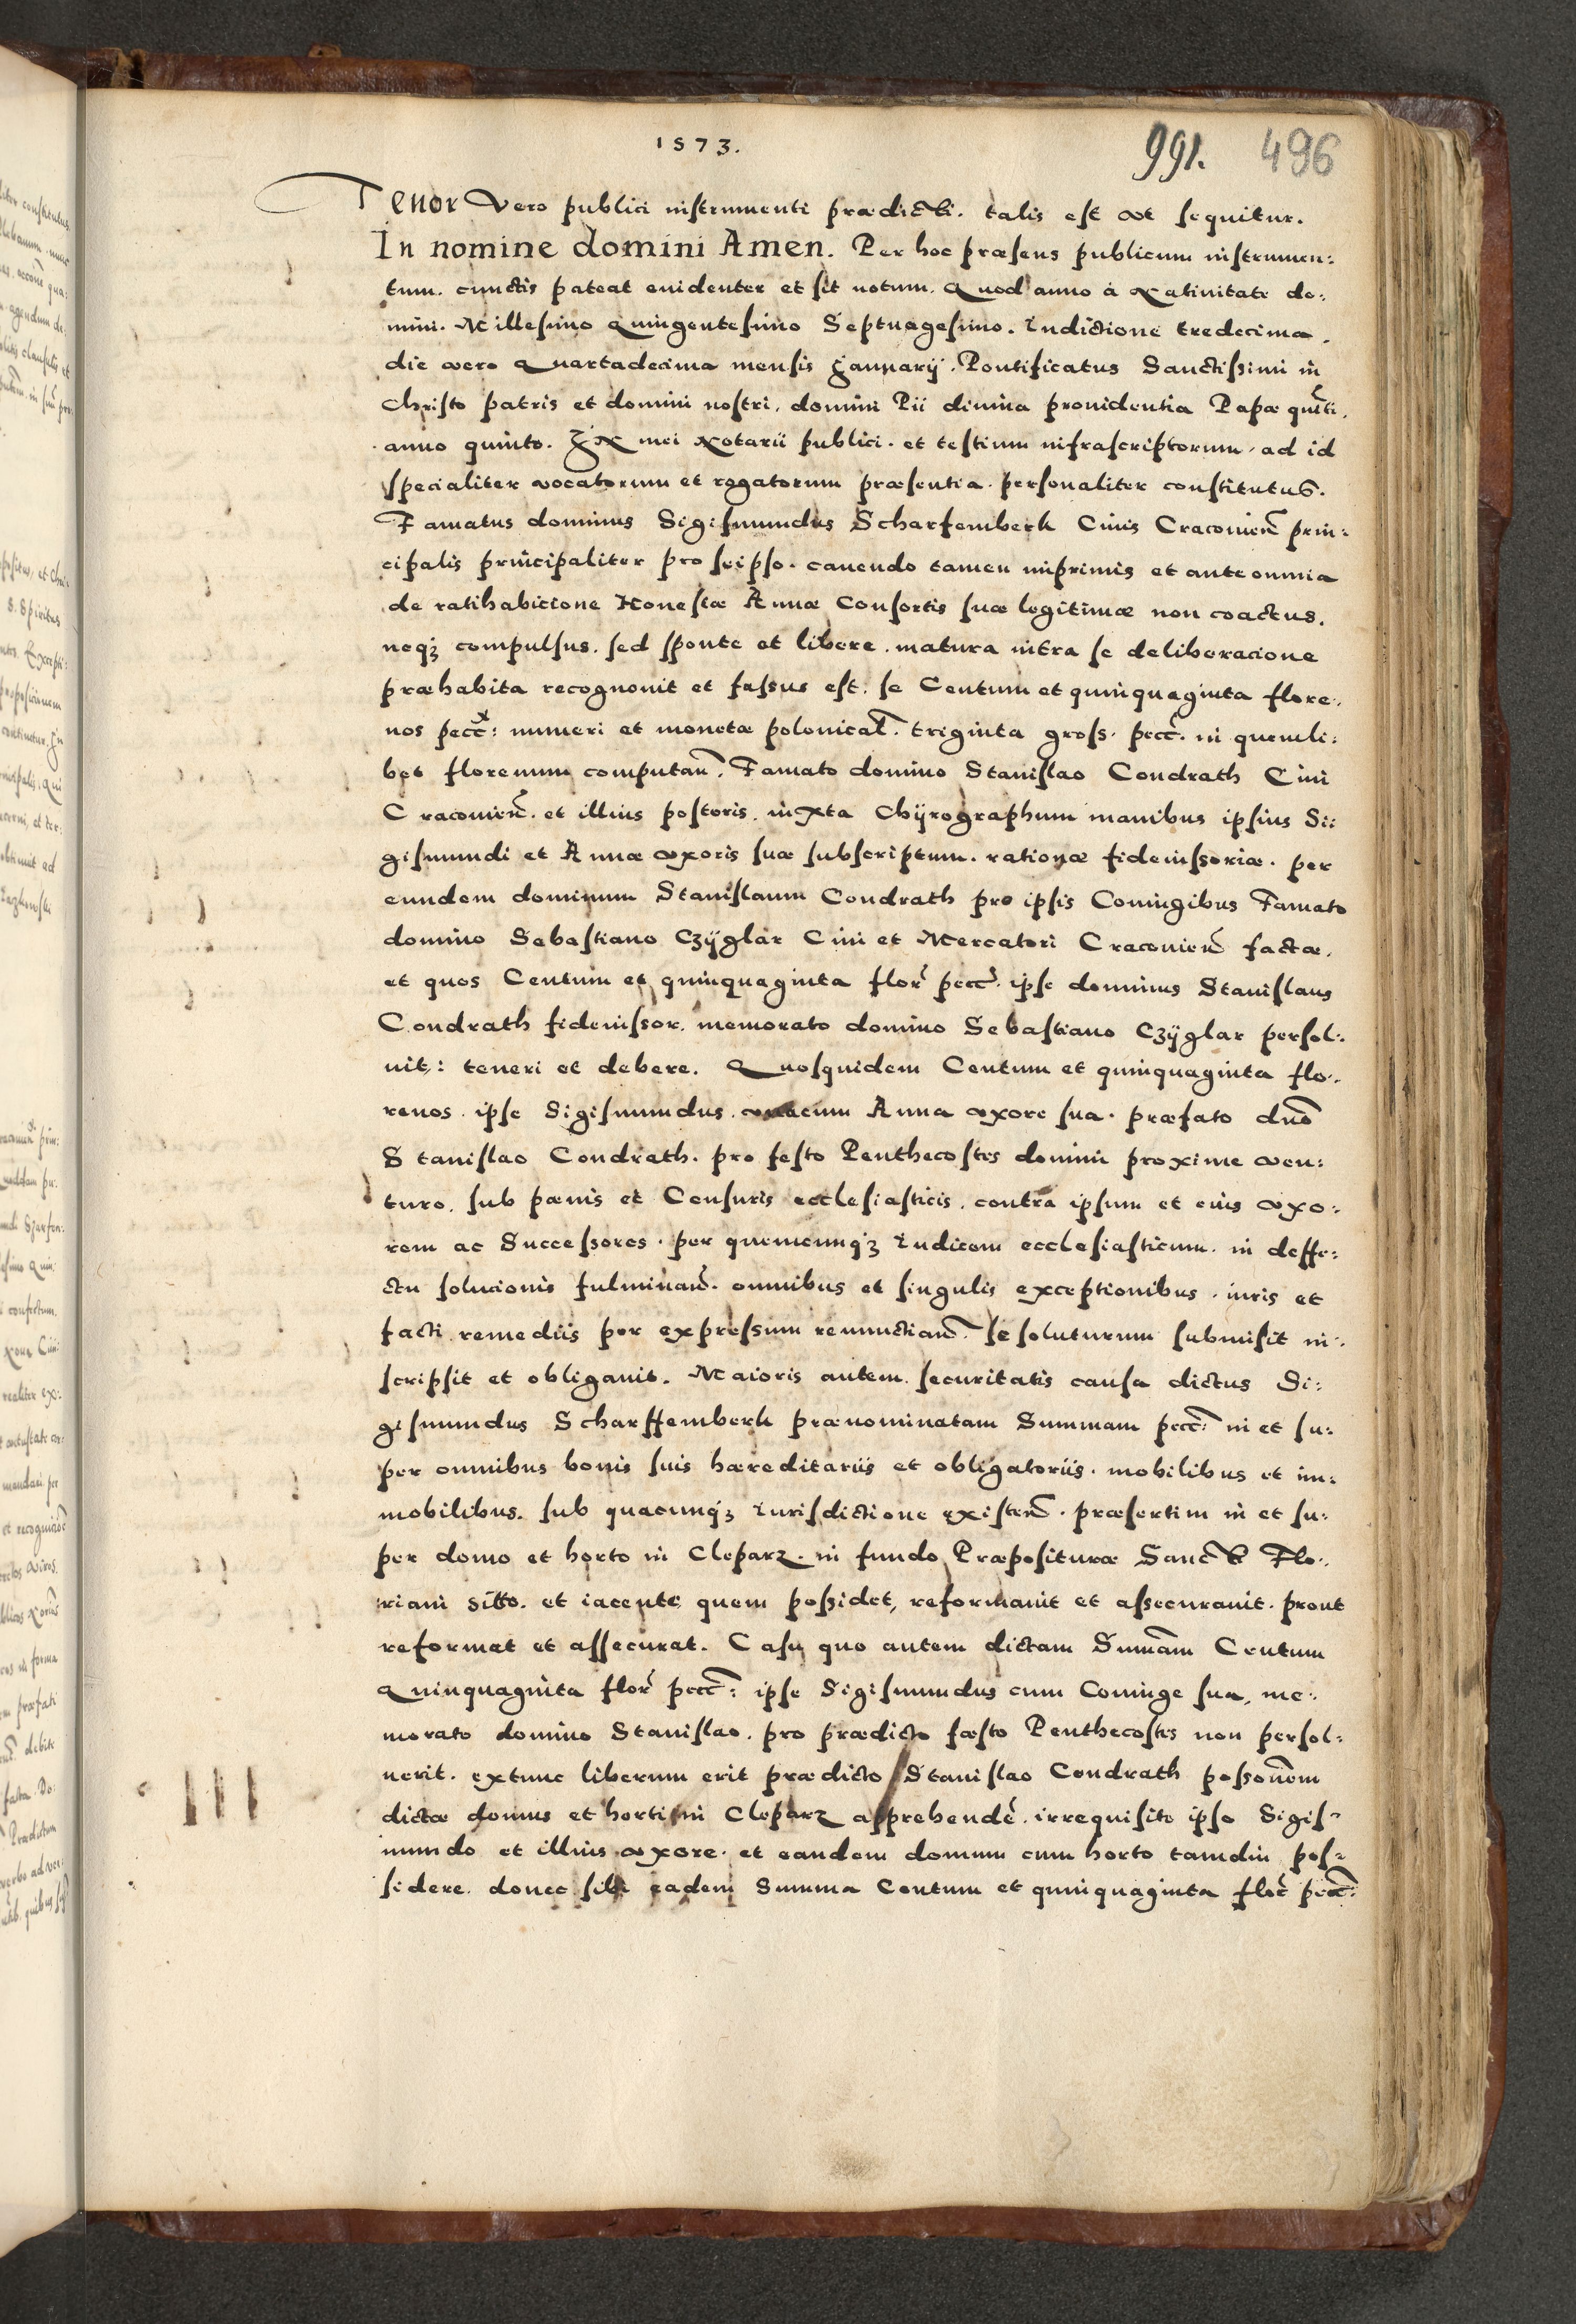 1573.
991. 496
Tenor vero publici instrumenti prædicti. talis est vt sequitur.
In nomine domini Amen. Per hoc præsens publicum instrumen:
tum. cunctis pateat euidenter et sit notum. Quod anno à Natiuitate do:
mini. Millesimo Quingentesimo Septuagesimo. Indictione tredecima.
die vero Quartadecima mensis Januarij. Pontificatus Sanctissimi in
Christo patris et domini nostri, domini Pii diuina prouidentia Papæ quīti.
anno quinto. In mei Notarii publici. et testium infrascriptorum, ad id
specialiter vocatorum et rogatorum præsentia. personaliter constitutus.
Famatus dominus Sigismundus Scharfemberk Ciuis Cracouień prin:
cipalis principaliter pro seipso. cauendo tamen inprimis et ante omnia
de ratihabicione Honestæ Annæ Consortis suæ legitimæ non coactus.
neq₃ compulsus. sed sponte et libere. matura intra se deliberacione
præhabita recognouit et fassus est. se Centum et quinquaginta flore:
nos pecć: numeri et monetæ polonical̃. triginta gross. pecć. in quemli:
bet florenum computań. Famato domino Stanislao Condrath Ciui
Cracouień. et illius postoris. iuxta Chyrographum manibus ipsius Si:
gismundi et Annæ vxoris suæ subscriptum. rationæ fideiussoriæ. per
eundem dominum Stanislaum Condrath pro ipsis Coniugibus Famato
domino Sebastiano Czyglar Ciui et Mercatori Cracouień factæ.
et quos Centum et quinquaginta flor̃ pecć. ipse dominus Stanislaus
Condrath fideiussor. memorato domino Sebastiano Czyglar persol:
uit: teneri et debere. Quosquidem Centum et quinquaginta flo:
renos. ipse Sigismundus. vnacum Anna vxore sua. præfato dnō
Stanislao Condrath. pro festo Penthecostes domini proxime ven:
turo. sub pænis et Censuris ecclesiasticis. contra ipsum et eius vxo:
rem ac Successores. per quemcunq₃ Iudicem ecclesiasticum. in deffe:
ctu solucionis fulminań. omnibus et singulis exceptionibus. iuris et
facti remediis per expressum renunctiań. se soluturum submisit in:
scripsit et obligauit. Maioris autem. securitatis causa dictus Si:
gismundus Scharffemberk prænominatam Summam pecć: in et su:
per omnibus bonis suis hæreditariis et obligatoriis. mobilibus et im:
mobilibus. sub quacunq₃ Iurisdictione existeń. præsertim in et su:
per domo et horto in Cleparz. in fundo Præpositurae Sancti Flo:
riani sitto. et iacente quem possidet, reformauit et assecurauit. prout
reformat et assecurat. Casu quo autem dictam Sum̄am Centum
Quinquaginta flor̃ pecć: ipse Sigismundus cum Coniuge sua, me:
morato domino Stanislao. pro prædicto fæsto Penthecostes non persol:
uerit. extunc liberum erit prædicto Stanislao Condrath possonem
dictæ domus et horti in Cleparz apprehendẽ. irrequisito ipso Sigis=
mundo et illius vxore. et eandem domum cum horto tamdiu pos=
sidere. donec sibi eadem Summa Centum et quinquaginta flor̃ pecć: